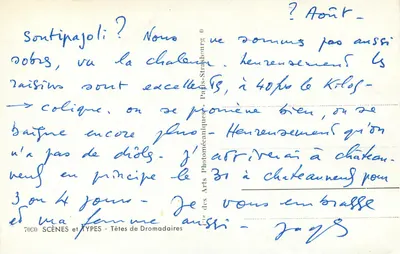 ? Août -
sontipajoli ? Nous ne sommes pas aussi
sobres, vu la chaleur. heureusement les
raisins sont excellents, à 40 frs le Kilog -
→ colique. on se promène bien, on se
baigne encore plus - Heureusement qu'on
n'a pas de drôles. J'arriverai à château-
neuf en principe le 30 à chateauneuf pour
3 ou 4 jours - Je vous embrasse
et ma femme aussi -
7860 SCÈNES et TYPES - Têtes de Dromadaires
des Arts Photomécaniques - Paris-Strasbourg